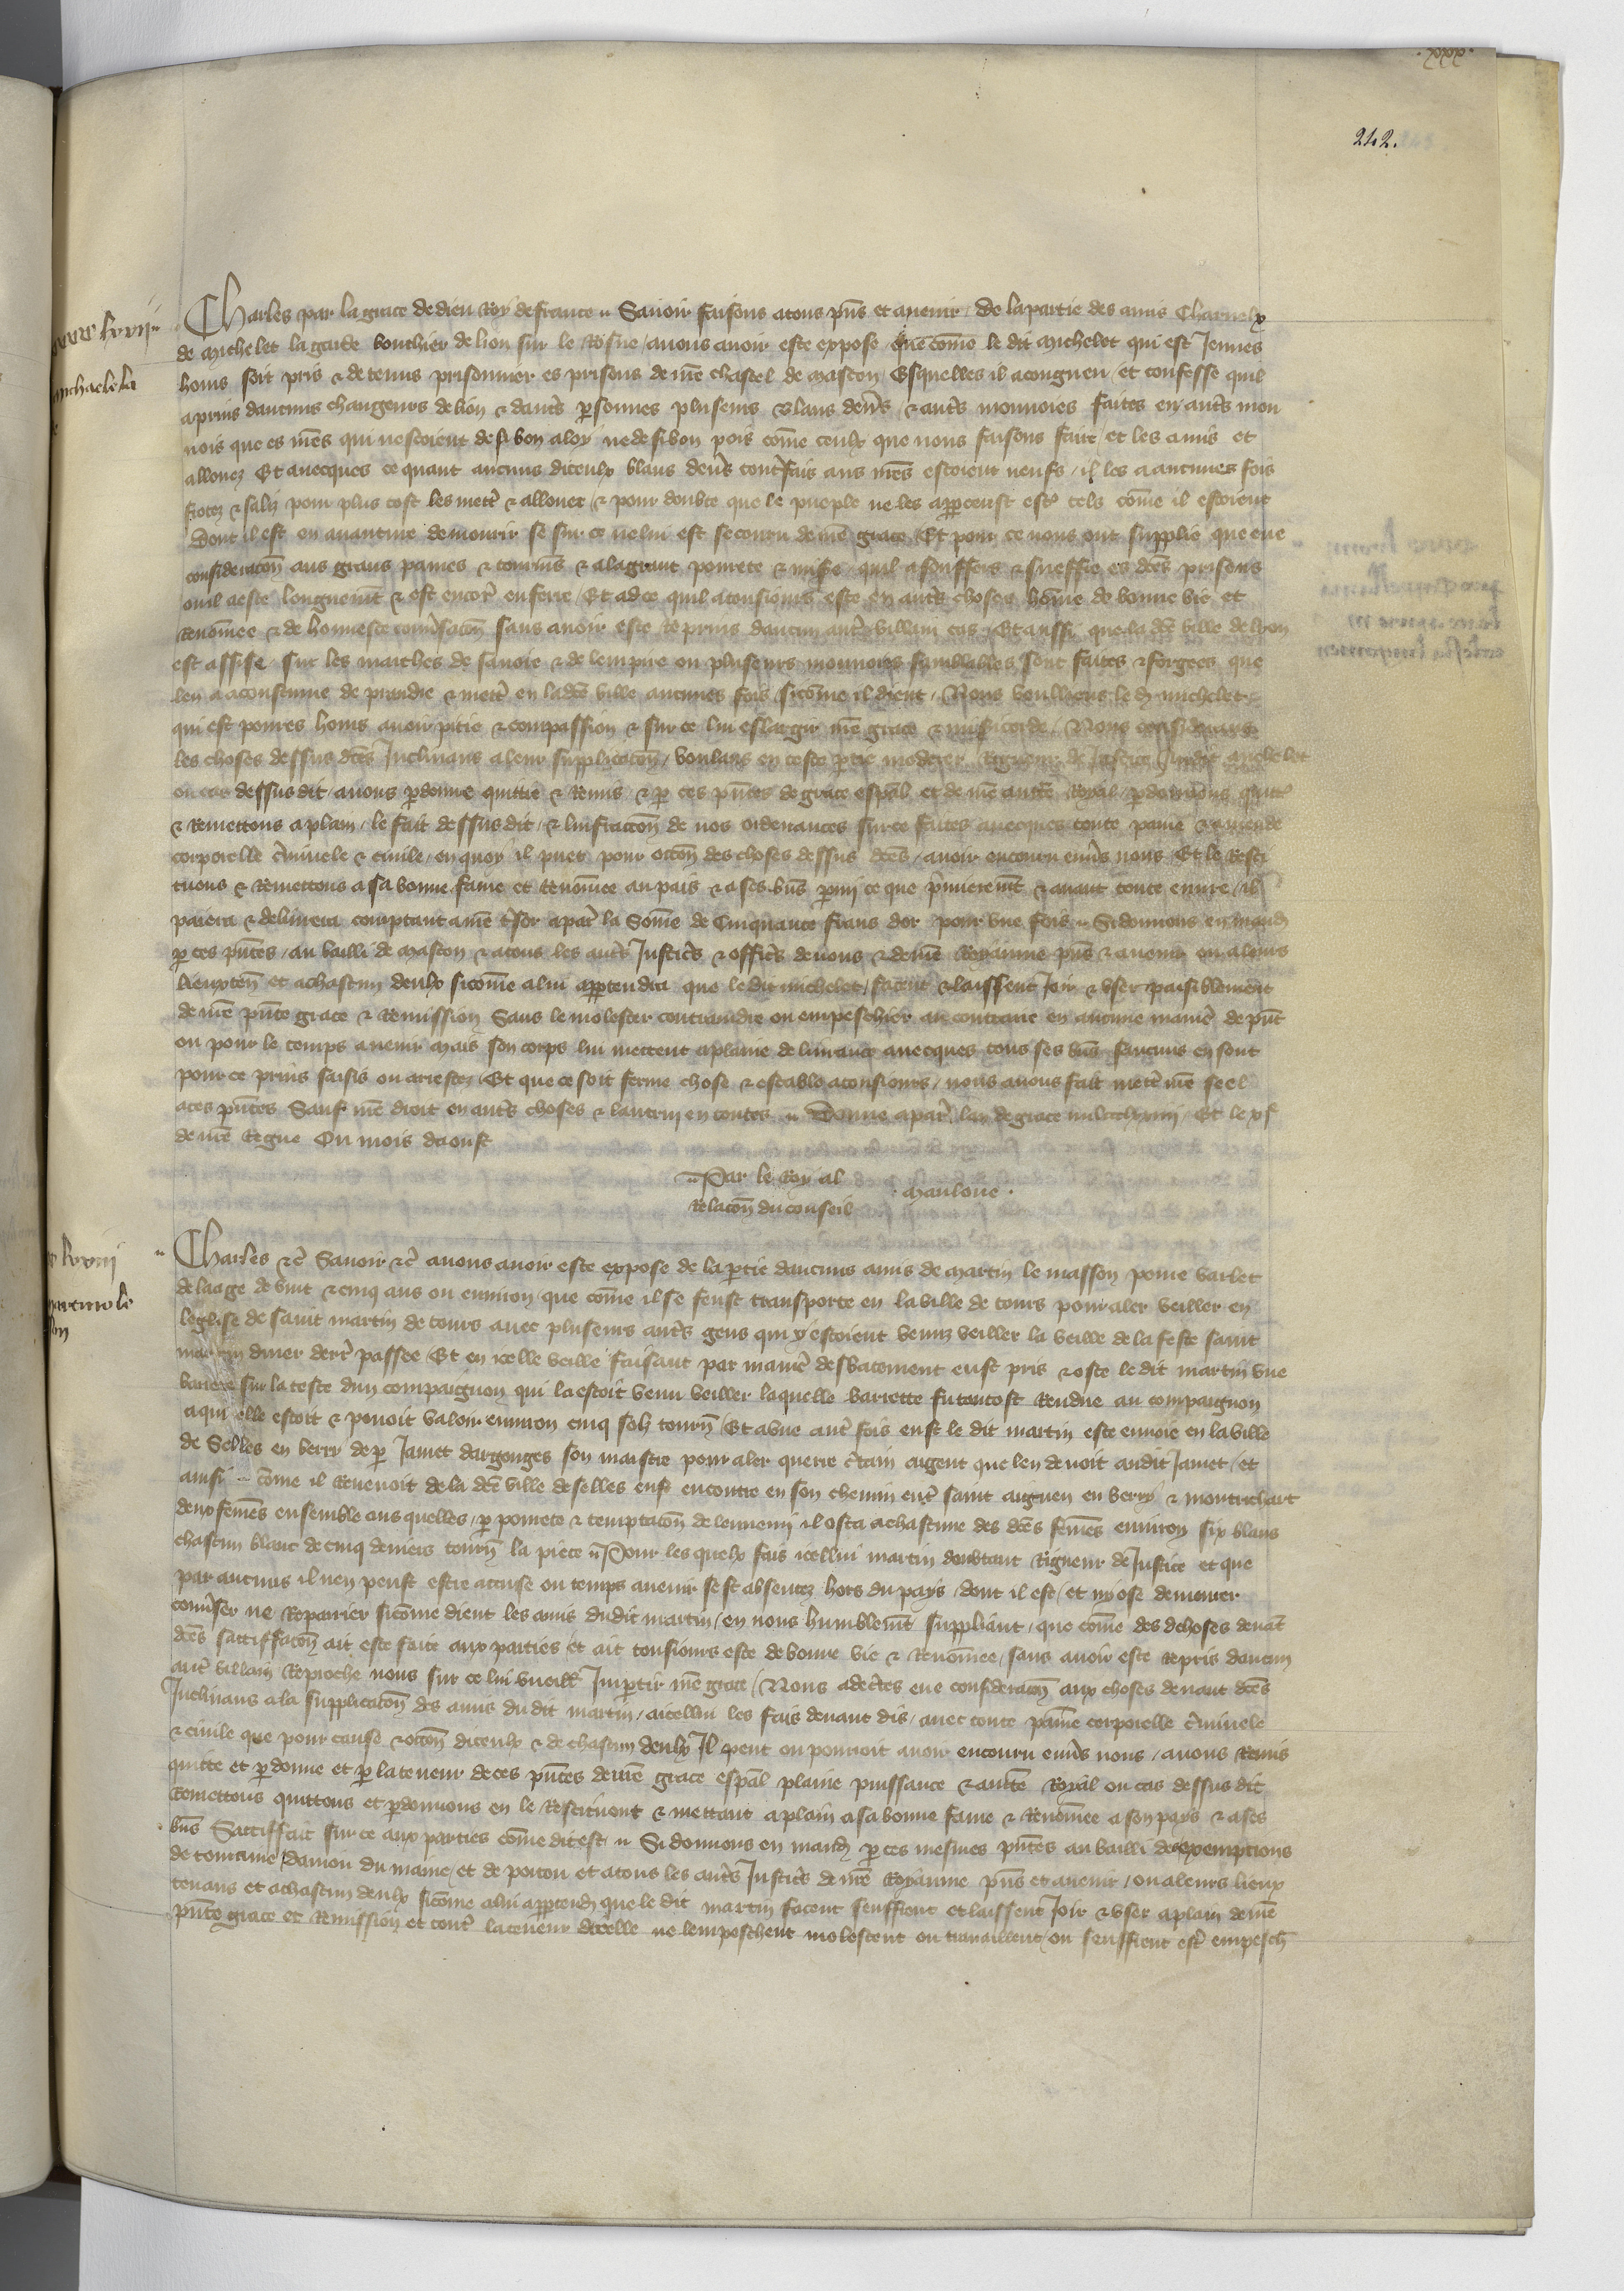 .xxx.
242.
Charles par la grace de dieu Roy de france Savoir faisons a tous pñs et avenir de la partie des amis charnelx
de Michelet la garde bouchier de lion sur le Rosne avons avoir este expose que cõme le dit Michelet qui est Jennes
homs soit pris & detenus prisonnier es prisons de nr̃e chastel de mascon Esquelles il a congneu et confesse quil
a prins daucuns changeurs de lion & dautr̃s ꝑsonnes pluseurs blans den̄rs & autr̃s monnoies faites en autr̃s mon
noies que es nr̃es qui nestoient de si bon aloy ne de si bon pois cõme ceulx que nous faisons faire et les a mis et
allouez Et avecques ce quant aucuns diceulx blans den̄rs contrefais aus nr̃es estoient neufs il les a aucunes fois
frotez & saliz pour plus tost les mettr̃ & allouer & pour doubte que le pueple ne les apperceust estr̃ telz cõme il estoient
Dont il est en avanture de mourir se sur ce ne lui est secouru de nr̃e grace Et pour ce nous ont supplie que eue
consideracõn aus grans paines & tourmẽs & a la grant povrete & misẽ quil a souffers & sueffre es dc̃es prisons
ouil a este longuemẽt & est encor̃ enferre Et ad ce quil a tousiours este en autr̃s choses hõme de bonne vie et
renõmee & de honneste convs̃acõn sans avoir este reprins daucun autr̃ villain cas Et aussi que la dc̃e ville de lyon
est assise sur les marches de savoie & de lempire ou pluseurs monnoies semblables sont faites & forgees que
len a acoustume de prendre & mettr̃ en la dc̃e ville aucunes fois sicõme il dient Nous voulliens le d̃ michelet
qui est povres homs avoir pitie & compassion & sur ce lui eslargir nr̃e grace & mis̃icorde Nous considerans
les choses dessus dc̃es Inclinans a leur supplicacõn voulans en ceste ꝑtie moderer Rigueur de Justice audit michelet
ou cas dessus dit avons ꝑdonne quittie & Remis & ꝑ ces pñtes de grace esp̃al et de nr̃e auctr̃e Royal ꝑdonnons quitt̃
& Remettons a plain le fait dessus dit & linfraccõn de nos ordenances sur ce faites avecques toute paine & amende
corporelle cr̃iminele & civile en quoy il puet pour occõn des choses dessus dc̃es avoir encouru env̄s nous Et le Resti
tuons & Remettons a sa bonne fame et Renõmee au pais & a ses biẽs ꝑmi ce que p̃mieremẽt & avant toute euvre il
paiera & delivrera comptant a nr̃e tr̃sor a par̃ la Sõme de Cinquante frans dor pour une fois Si donnons en mand̃
ꝑ ces pñtes au bailli de mascon & a tous les autr̃s Justic̃rs & offic̃rs de nous & de nr̃e Royaume pñs & avenir ou a leurs
lieuxten̄ et a chascun deulx sicõme a lui appartendra que le dit michelet facent & laissent Joir & user paisiblement
de nr̃e pñte grace & Remission Sans le molester contraindre ou empeschier au contraire en aucune manier̃ de pñt
ou pour le temps avenir Mais son corps lui mettent a plaine delivrance avecques tous ses biẽs saucuns en sont
pour ce prins saisis ou arrestez Et que ce soit ferme chose & estable a tousiours nous avons fait mettr̃ nr̃e seel
a ces pñtes Sauf nr̃e droit en autr̃s choses & lautrui en toutes Donne a par̃ lan de grace mil ccc lxxiiii Et le xj
de nr̃e Regne Ou mois daoust
Par le Roy a la
Relacõn du conseil Mauloue
Charles &c̃ Savoir &c̃ avons avoir este expose de la ꝑtie daucuns amis de Martin le masson povre varlet
de laage de vint & cinq ans ou environ que cõme il se feust transporte en la ville de tours pour aler veiller en
leglise de saint martin de tours avec pluseurs autr̃s gens qui y estoient venuz veiller la veille de la feste saint
martin diver derr̃ passee Et en icelle veille faisant par manier̃ desbatement eust pris & oste le dit martin une
barrete sur la teste dun compaignon qui la estoit venu veiller laquelle barrette fu tantost Rendue au compaignon
a qui elle estoit & povoit valoir environ cinq solz tourñ Et a une autr̃ fois eust le dit martin este envoie en la ville
de Selles en berry de ꝑ Jamet dargouges son maistre pour aler querre c̃tain argent que len devoit audit Jamet et
ainsi cõme il Revenoit de la dc̃e ville de selles eust encontre en son chemin entr̃ saint aignen en berry & montrichart
deux fem̃es ensemble aus quelles ꝑ povrete & temptacõn de lennemi il osta a chascune des dc̃es fem̃es environ six blans
chascun blanc de cinq deniers tourñ la piece Pour les quelx fais icellui martin doubtant Rigueur de Justice et que
par aucuns il nen peust estre accuse ou temps avenir sest absentez hors du pays dont il est et ny ose demourer
conv̄ser ne Repairier sicõme dient les amis dudit martin en nous humblemẽt suppliant que cõme des dchoses devãt
dc̃es sattiffacõn ait este faite aux parties et ait tousiours este de bonne vie & Renõmee sans avoir este repris daucun
autr̃ villain Reproche nous sur ce lui vueill̃ Imꝑtir nr̃e grace Nous adcr̃tes eue consideracõn aux choses devant dc̃es
Inclinans a la supplicacõn des amis du dit martin a icellui les fais devant dis avec toute paine corporelle cr̃iminele
& civile que pour cause & occõn diceulx & de chascun deulx Il peut ou pourroit avoir encouru env̄s nous avons Remis
quitte et ꝑdonne et ꝑ la teneur de ces pñtes de nr̃e grace esp̃al plaine puissance & auctẽ Royal ou cas dessus dit
Remettons quittons et ꝑdonnons en le Restituent & mettant a plain a sa bonne fame & Renõmee a son pays & a ses
biẽs Sattiffait sur ce aux parties cõme dit est Si donnons en mand̃ ꝑ ces mesmes pñtes au bailli des exempcions
de touraine danjou du maine et de poitou et a tous les autr̃s Justic̃rs de nr̃e Royaume pñs et avenir ou a leurs lieux
tenans et a chascun deulx sicõme a lui appartend̃ que le dit martin facent seuffrent et laissent Joir & user a plain de nr̃e
pñte grace et Remission et contr̃ la teneur dicelle ne lempeschent molestent ou travaillent ou seuffrent estr̃ empesch̃